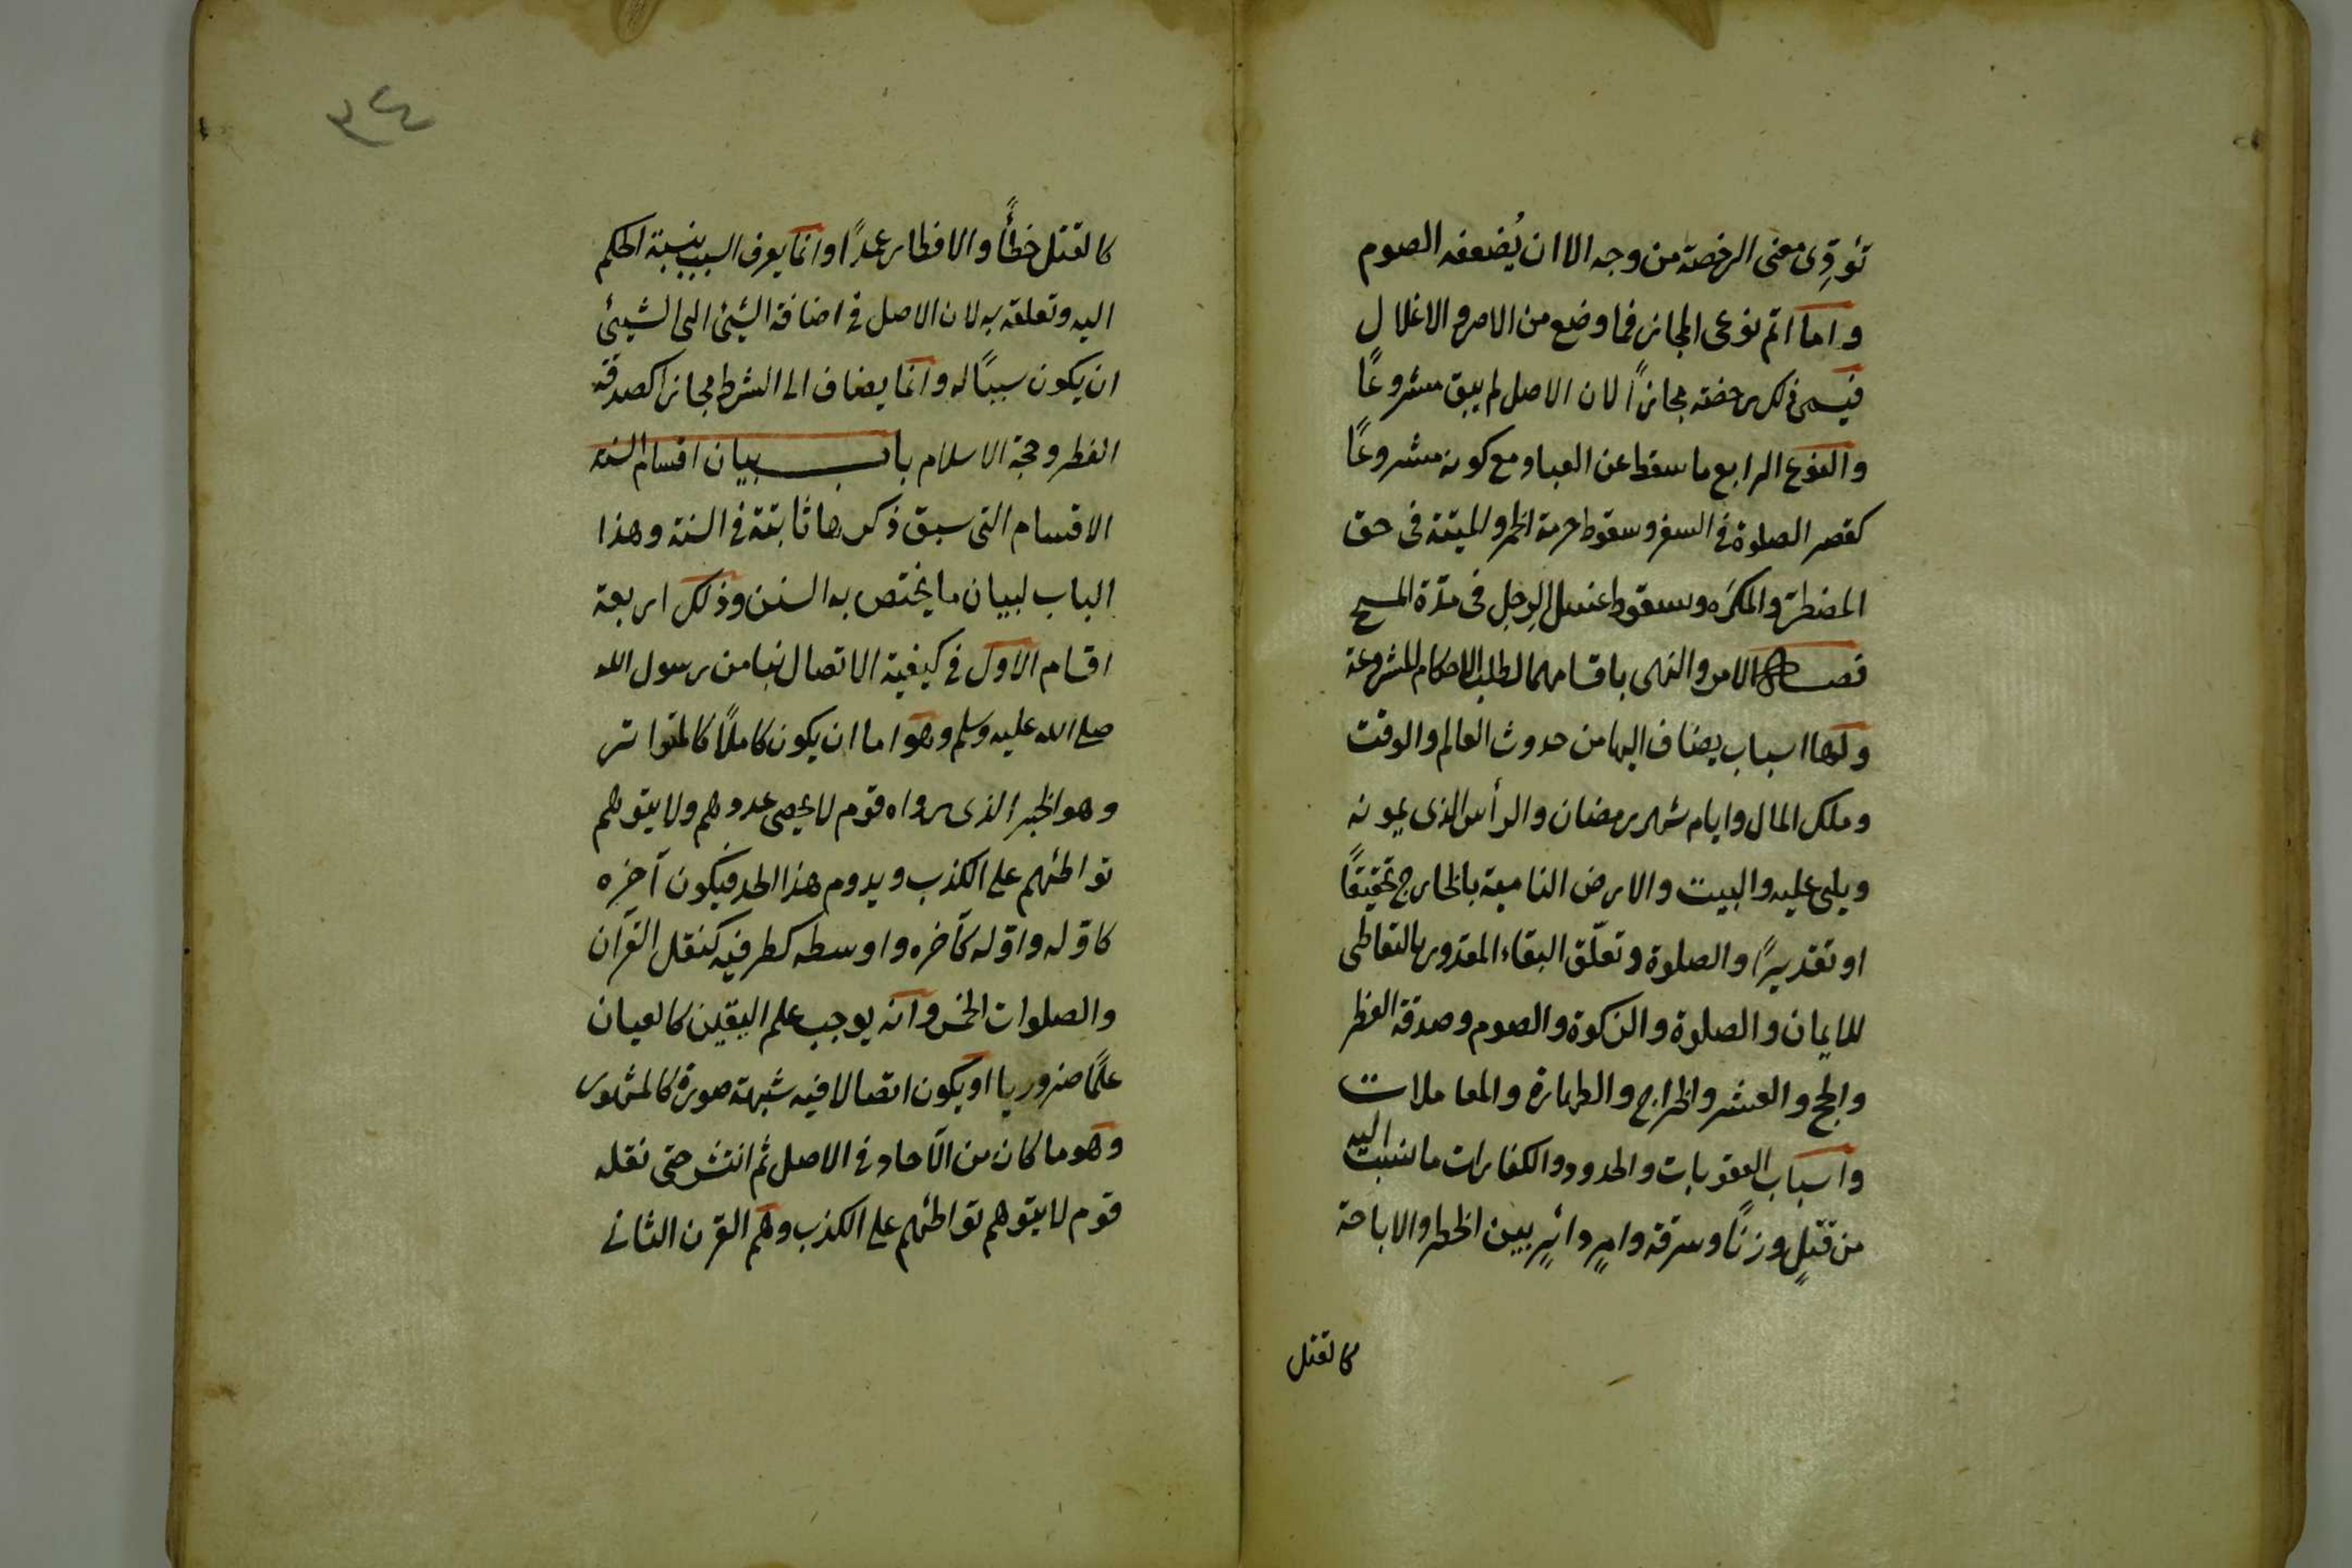 تؤدّى معنى الرخصة من وجه الا ان يُضعفه الصوم
واما اتم نوعى المجاز فما وضع من الاصر والاغلال
فيسمى ذلك رخصة مجازًا لان الاصل لم يبق مشروعًا
والنوع الرابع ما سقط عن العباد مع كونه مشروعًا
كقصر الصلوة فى السفر وسقوط حرمة الخمر والميتة فى حق
المضطر والمكرَه وسقوط غسل الرجل فى مدّة المسح
فصل الامر والنهى باقسامهما لطلب الاحكام المشروعة
ولها اسباب يضاف اليها من حدوث العالم والوقت
وملك المال وايام شهر رمضان والرأس الذى يمونه
ويلى عليه والبيت والارض النامية بالخارج تحقيقًا
او تقديرًا والصلوة وتعلّق البقاء المقدور بالتعاطى
للايمان والصلوة والزكوة والصوم وصدقة الفطر
والحج والعشر والخراج والطهارة والمعاملات
واسباب العقوبات والحدود والكفارات ما نسبت اليه
من قتلٍ وزنًا وسرقة وامرٍ دائرٍ بين الحظر والاباحة
كالقتل
٣٤
كالقتل خطأً والافطار عمدًا وانما يعرف السبب بنسبة الحكم
اليه وتعلقه به لان الاصل فى اضافة الشئ الى الشيئ
ان يكون سببًا له وانما يضاف الى الشرط مجازا كصدقة
الفطر وحجة الاسلام باب بيان اقسام السنة
الاقسام التى سبق ذكرها ثابتة فى السنة وهذا
الباب لبيان ما يختص به السنن وذلك اربعة
اقسام الاول فى كيفية الاتصال بنا من رسول الله
صلى الله عليه وسلم وهو اما ان يكون كاملًا كالمتواتر
وهو الخبر الذى رواه قوم لا يحصى عددهم ولا يتوهم
تواطئهم على الكذب ويدوم هذا الحد فيكون آخره
كاوله واوله كآخره واوسطه كطرفيه كنقل القرآن
والصلوات الخمس وانه يوجب علم اليقين كالعيان
علمًا ضروريا او يكون اتصالا فيه شبهة صورة كالمشهور
وهو ما كان من الآحاد فى الاصل ثم انتشر حتى نقله
قوم لا يتوهم تواطئهم على الكذب وهم القرن الثانى